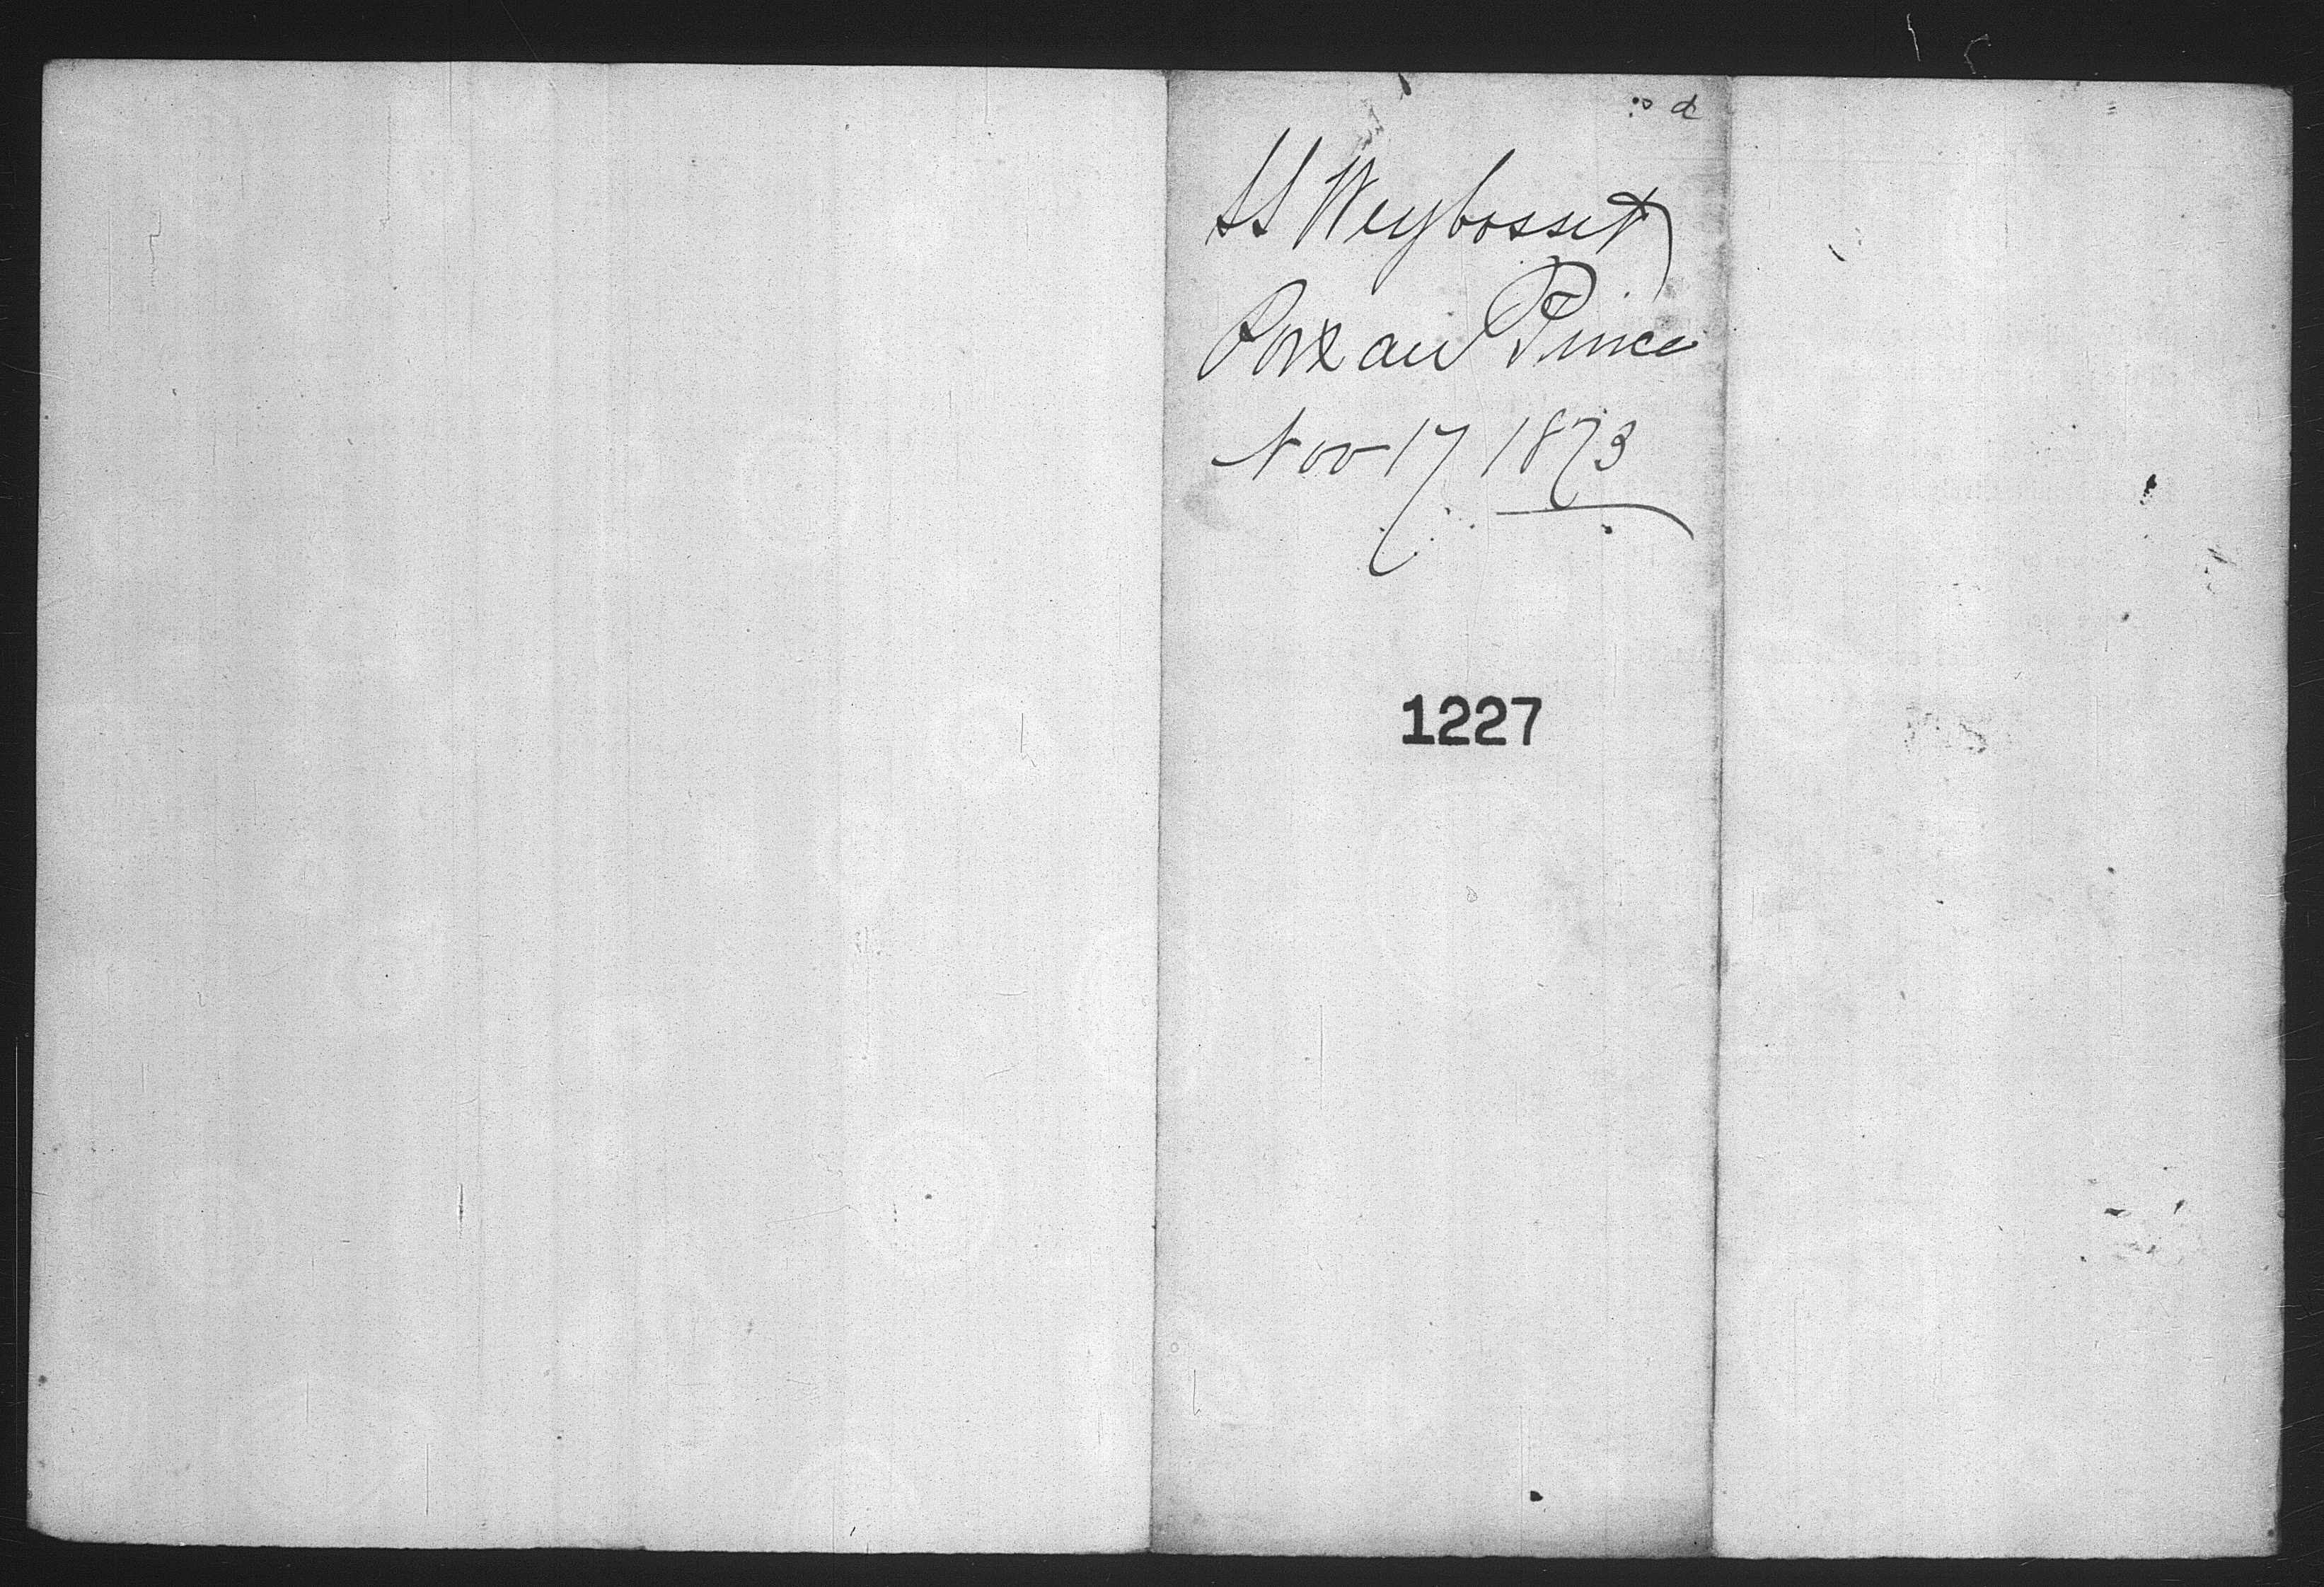 SS Weybosset
Port au Prince
Nov 17 1873
1227